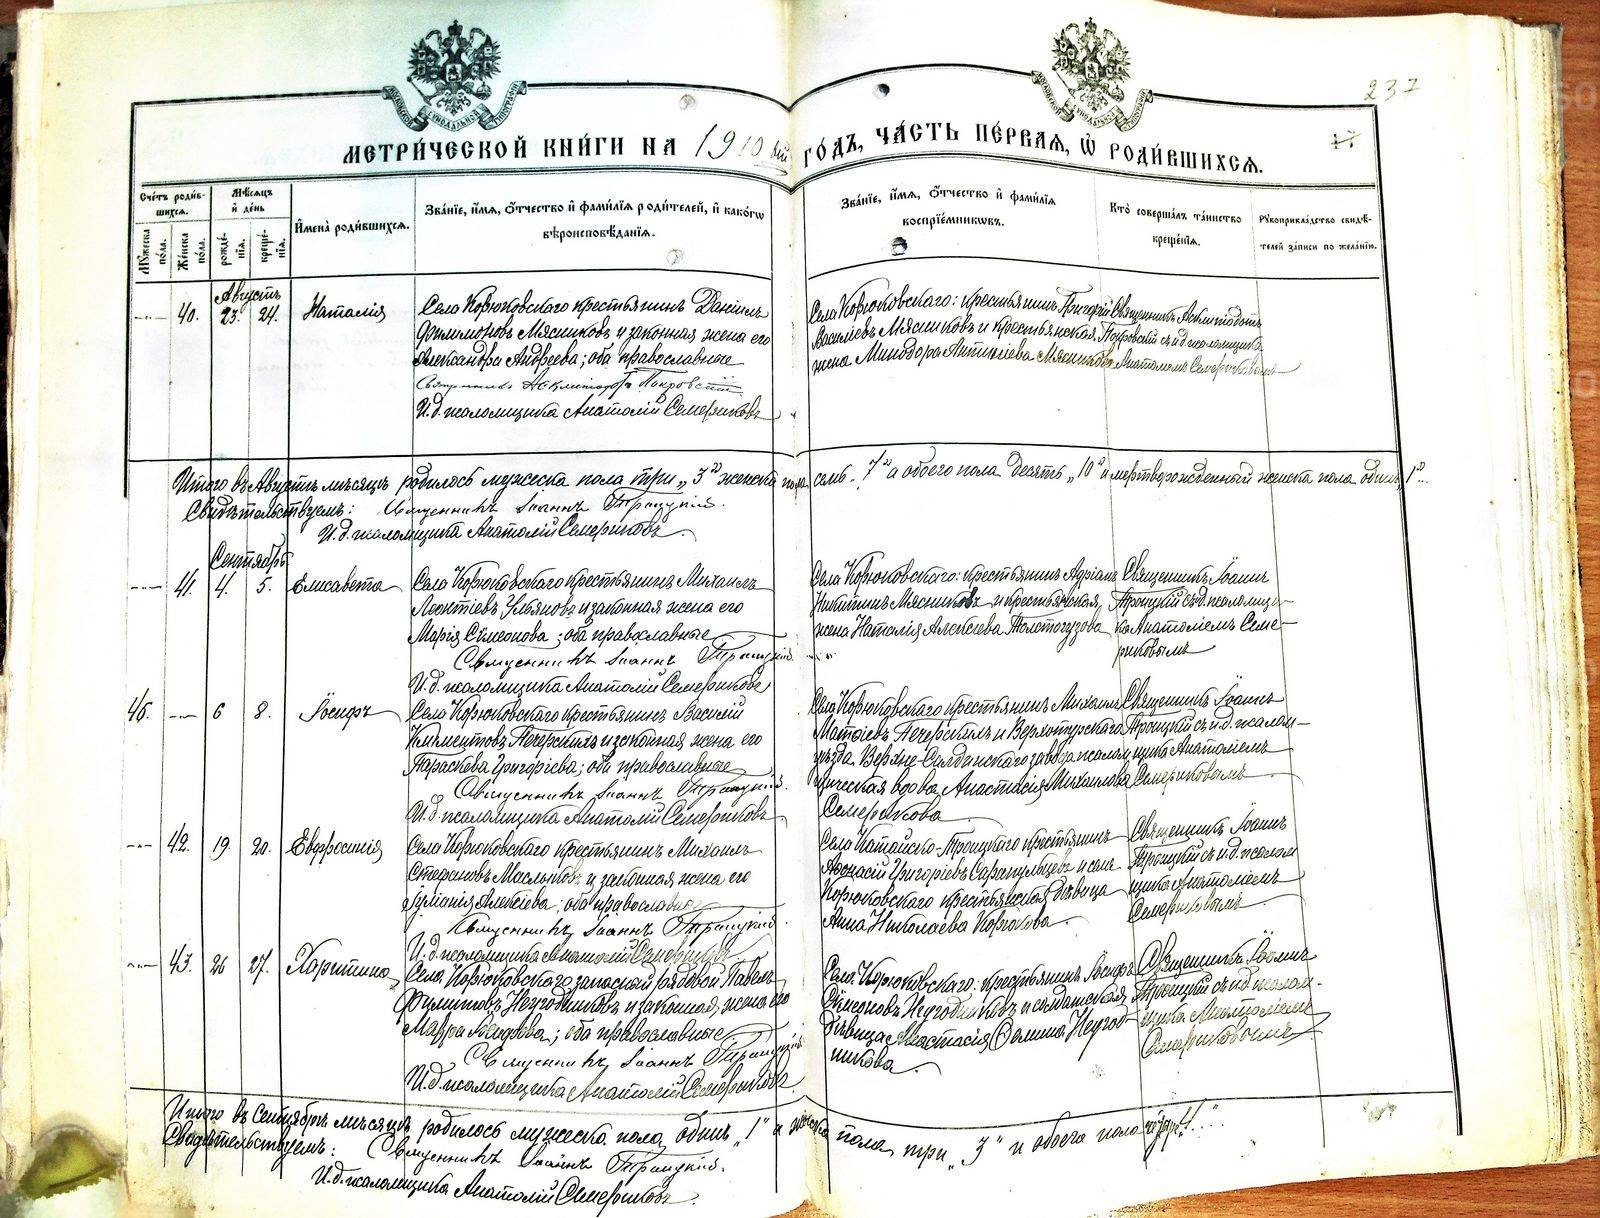 237
МЕТРИ́ЧЕСКОЙ КНИ́ГИ НА 1910 ый ГО́ДЪ, ЧА́СТЬ ПЕ́РВАЯ, Ѿ РОДИ́ВШИХСЯ.
17
Сче́тъ роди́в-
шихся.
Мꙋ́жеска по́ла.
Же́нска по́ла.
Мѣ́сяцъ и́ де́нь
рожде́нїя.
креще́нїя.
И҆мена̀ роди́вшихся.
Зва́нїе, и҆́мя, ѻ҆́тчество и҆ фами́лїя роди́телей, и҆ како́гѡ
вѣроисповѣ́данїя.
Зва́нїе, и҆́мя, ѻ҆́тчество и҆ фами́лїя
воспрїе́мникѡвъ.
Кто̀ соверша́лъ та́инство
креще́нїя.
Рꙋкоприкла́дство свидѣ́-
телей за́писи по жела́нїю.
Августъ
40. 23. 24. Наталія
Села Корюковскаго крестьянинъ Даніилъ
Филимоновъ Мясниковъ и законная жена его
Александра Андреева; оба православные
Священникъ Асклиподотъ Покровскій
И.д. псаломщика Анатолій Семериковъ
Села Корюковскаго: крестьянинъ Григорій
Василіевъ Мясниковъ и крестьянская
жена Минодора Мясникова
Священникъ Асклиподотъ
Покровскій съ и.д. псаломщика
Анатоліемъ Семериковымъ
Итого въ Августѣ мѣсяцѣ родилось мужеска пола три „3" женска пола семь „7" а обоего пола десять „10" и мертворожденный женска пола одинъ „1"
Свидѣтельствуемъ: Священникъ Іоаннъ Троицкій.
И.д. псаломщика Анатолій Семериковъ.
Сентябрь
41. 4. 5. Елисавета
Села Корюковскаго крестьянинъ Михаилъ
Леонтіевъ Ульяновъ и законная жена его
Марія Сѷмеонова; оба православные
Священникъ Іоаннъ Троицкій.
И.д. псаломщика Анатолій Семериковъ
Села Корюковскаго: крестьянинъ Адріанъ
Никитинъ Мясниковъ и крестьянская
жена Наталія Алексіева Толстогузова
Священникъ Іоаннъ
Троицкій съ и.д. псаломщи-
ка Анатоліемъ Семе-
риковымъ
46. 6 8. Іосифъ
Села Корюковскаго крестьянинъ Василій
Климентовъ Печерскихъ и законная жена его
Параскева Григоріева; оба православные
Священникъ Іоаннъ Троицкій.
И.д. псаломщика Анатолій Семериковъ
Села Корюковскаго крестьянинъ Михаилъ
Матѳіевъ Печерскихъ и Верхотурскаго
уѣзда Верхне-Салдинскаго завода псалом-
щическая вдова Анастасія Михаилова
Семерикова
Священникъ Іоаннъ
Троицкій съ и.д. псалом-
щика Анатоліемъ
Семериковымъ
42. 19. 20. Евфросинія
Села Корюковскаго крестьянинъ Михаилъ
Стефановъ Маслыковъ и законная жена его
Іуліанія Алексіева; оба православные
Священникъ Іоаннъ Троицкій.
И.д. псаломщика Анатолій Семериковъ
Села Катайско-Троицкаго крестьянинъ
Аѳанасій Григоріевъ Сарапульцевъ и села
Корюковскаго крестьянская дѣвица
Анна Николаева Корюкова.
Священникъ Іоаннъ
Троицкій съ и.д. псалом
щика Анатоліемъ
Семериковымъ.
43. 26 27. Харитина
Села Корюковскаго запасной рядовой Павелъ
Филиповъ Негодниковъ и законная жена его
Мавра; оба православные
Священникъ Іоаннъ Троицкій
И.д. псаломщика Анатолій Семериковъ
Села Корюковскаго: крестьянинъ Іосифъ
Сѷмеоновъ Негодниковъ и солдатская
дѣвица Анастасія Ѳомина Негод-
никова.
Священникъ Іоаннъ
Троицкій съ и.д. псалом-
щика Анатоліемъ
Семериковымъ
Итого въ сентябрѣ мѣсяцѣ родилось мужеска пола одинъ „1" а женска пола три „3" и обоего пола четыре „4"
Свидѣтельствуемъ: Священникъ Іоаннъ Троицкій.
И.д. псаломщика Анатолій Семериковъ.